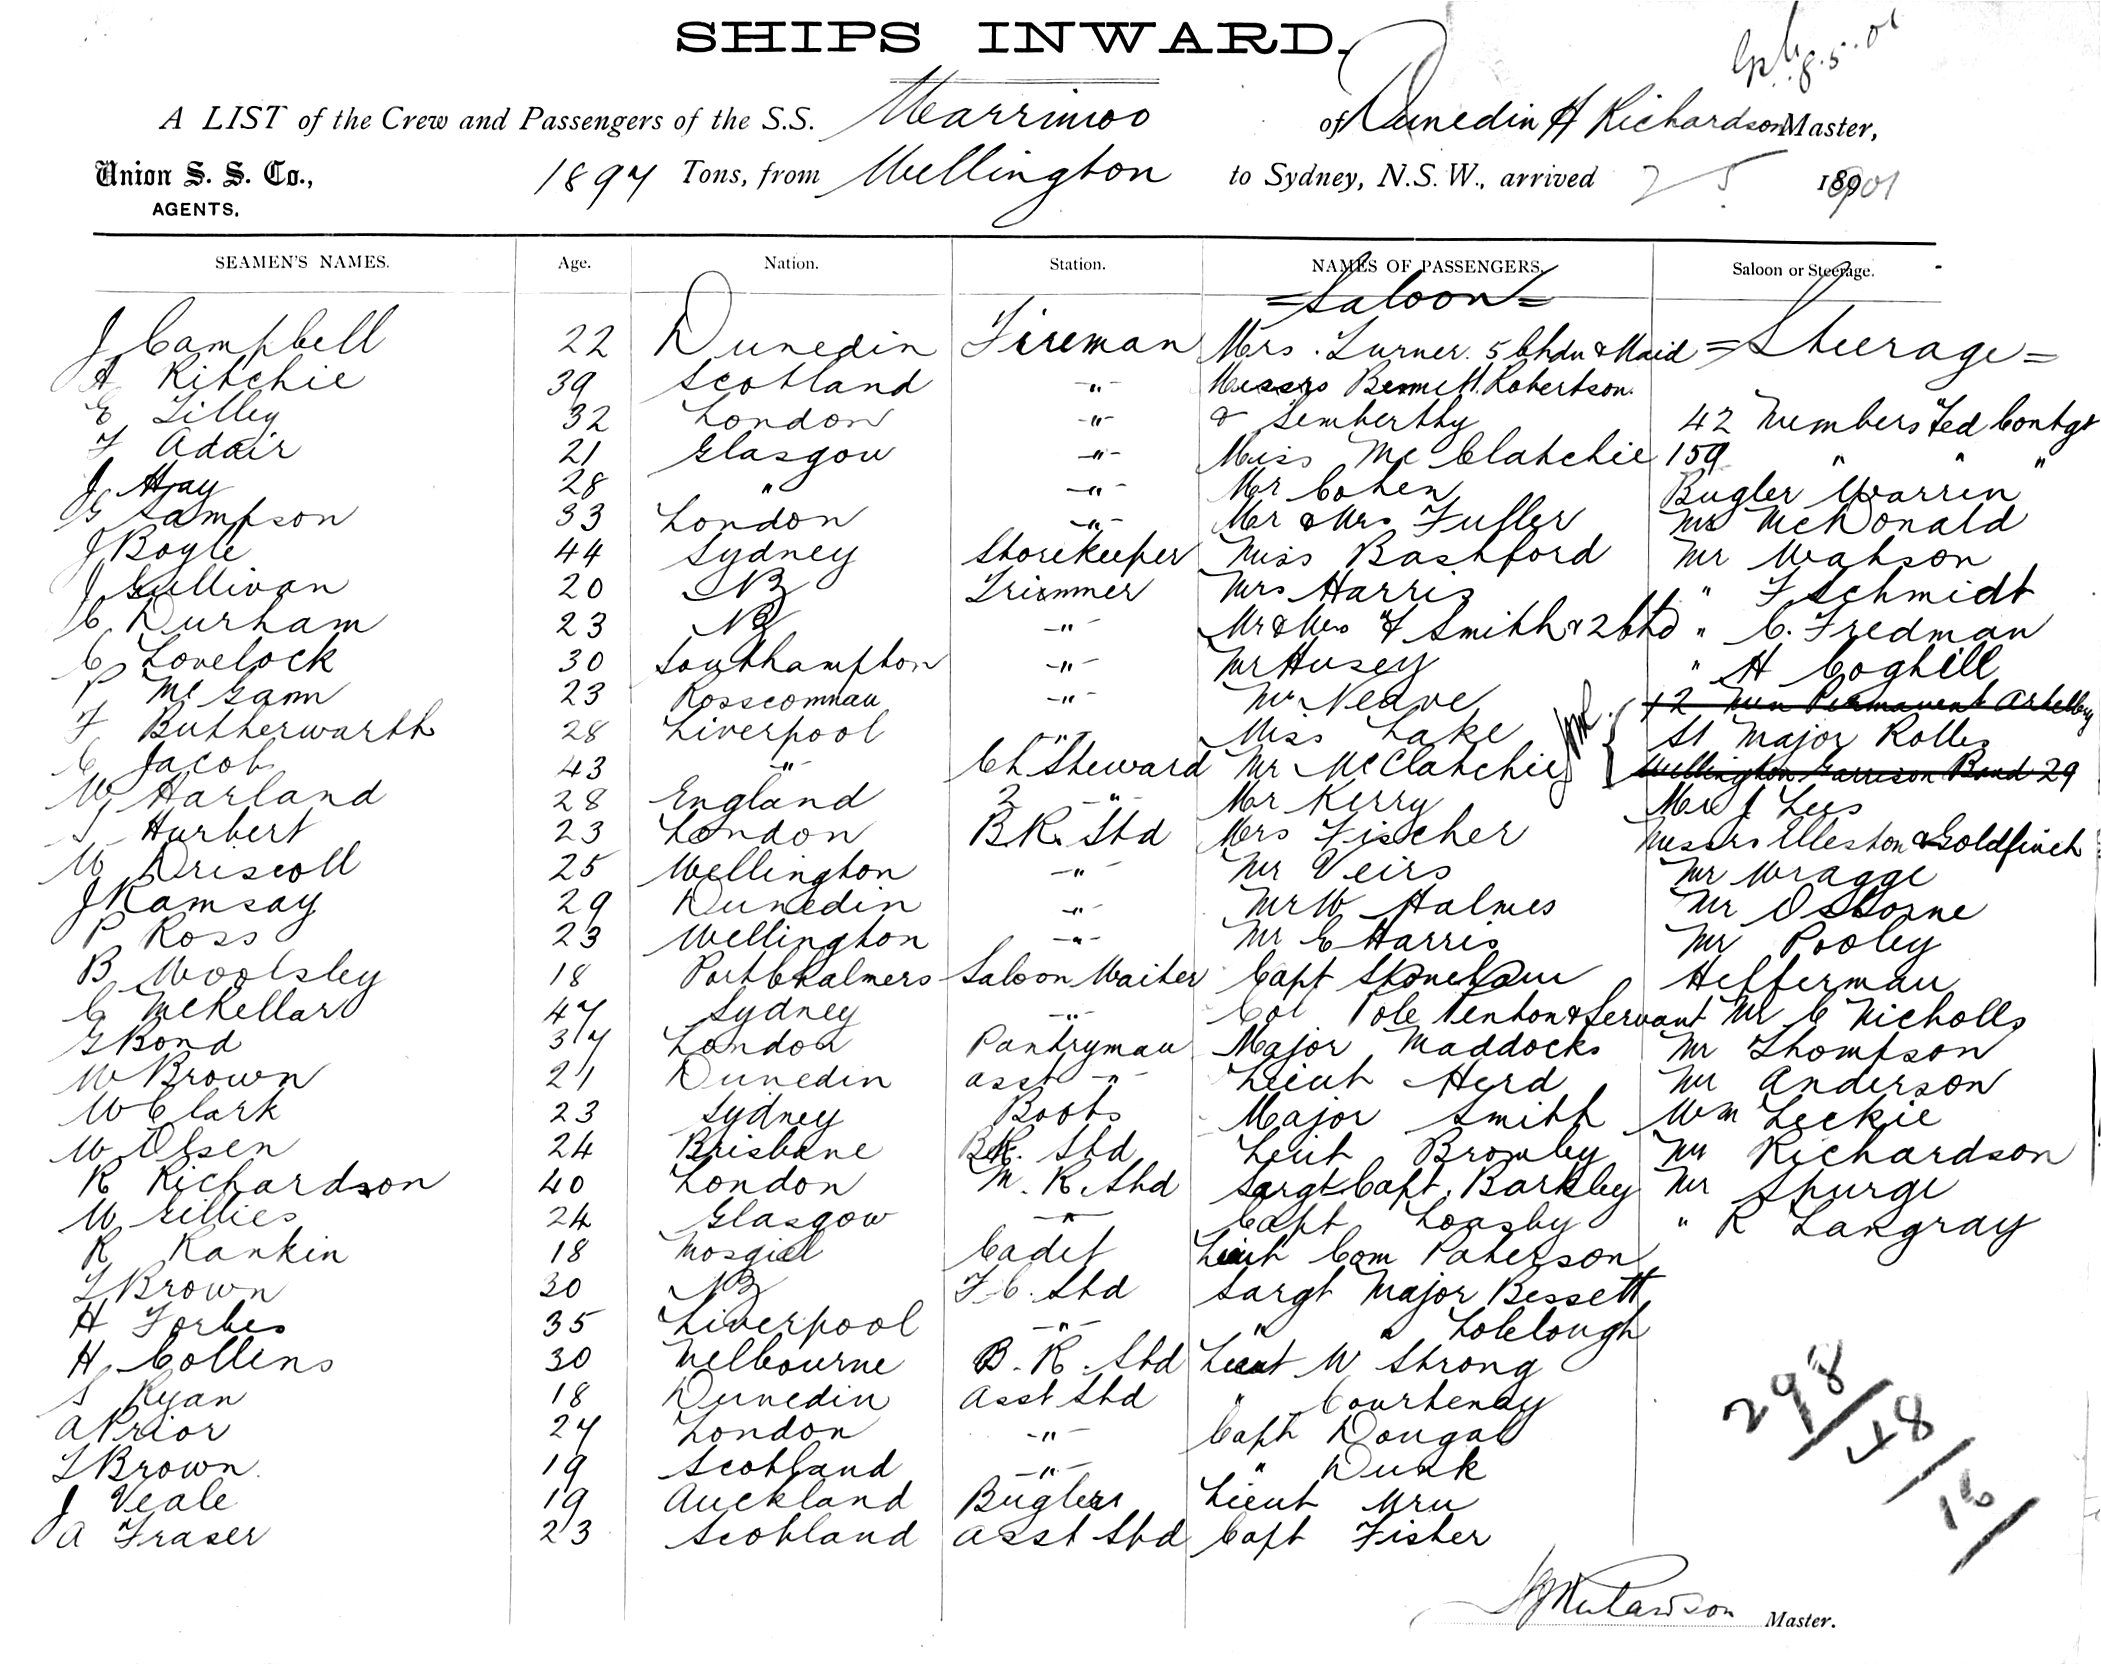 SHIPS INWARD.
A LIST of the Crew and Passengers of the S.S. Warrimoo of Dunedin H Richardson Master,
Union S. S. Co., 1897 Tons, from Wellington to Sydney, N.S.W., arrived 2 5 1901
AGENTS.
SEAMEN'S NAMES. Age. Nation. Station. NAMES OF PASSENGERS. Saloon or Steerage.
=Saloon=
J Campbell 22 Dunedin Fireman Mrs. Turner. 5 Chdn & Maid =Steerage=
A Ritchie 39 Scotland -"- Messrs Bennett. Robertson.
E Lilley 32 London -"- & Lemberthy 42 Members Fed Contgt
F Adair 21 Glasgow -"- Miss McClatchie 159 " " "
J Hay 28 " -"- Mr Cohen Bugler Warren
G Sampson 33 London -"- Mr & Mrs Fuller Mr McDonald
J Boyle 44 Sydney Storekeeper Miss Bashford Mr Watson
J Sullivan 20 NZ Trimmer Mrs Harris " F Schmidt
C Durham 23 NZ -"- Mr & Mrs F Smith & 2 Chd " C. Fredman
C Lovelock 30 Southampton -"- Mr Husey " H Coghill
P McGann 23 Rosscommau -"- Mr Neave 12 Men Permanent Artellery
F Butherwarth 28 Liverpool -"- Miss Lake St Major Rolles
C Jacob 43 -"- Ch Steward Mr McClatchie Wellington Garrison Band 29
W Harland 28 England 2 -"- Mr Kerry Mr J Lees
S Hurbert 23 London B.R. Std Mrs Fischer Messrs Elleston & Goldfinch
W Driscoll 25 Wellington -"- Mr Veirs Mr Wragge
J Ramsay 29 Dunedin -"- Mr W Halmes Mr Osborne
P Ross 23 Wellington -"- Mr C Harris Mr Pooley
B Woolsley 18 Port Chalmers Saloon Waiter Capt Stoneham Hefferman
C McKellar 47 Sydney -"- Col Pole Penton & Servant Mr C Nicholls
G Bond 37 London Pantryman Major Maddocks Mr Thompson
W Brown 21 Dunedin asst -"- Lieut Herd Mr Anderson
W Clark 23 Sydney Boots Major Smith Wm Leckie
W Olsen 24 Brisbane B.R. Std Lieut Bromley Mr Richardson
R Richardson 40 London M. R. Std Sargt Capt. Barkley Mr Spurge
W Gillies 24 Glasgow -"- Capt Loasby " R Langray
R Rankin 18 Mosgiel Cadet Lieut Com Paterson
L Brown 30 NZ F.C. Std Sargt Major Bessett
H Forbes 35 Liverpool -"- " " Colclough
H Collins 30 Melbourne B. R. Std Lieut W Strong
S Ryan 18 Dunedin Asst Std " Courtenay
A Prior 27 London -"- Capt Dougal
L Brown 19 Scotland -"- " Dunk
J Veale 19 Auckland Bugler Lieut Uru
A Fraser 23 Scotland Asst Std Capt Fisher
298
48
16
H Richardson Master.